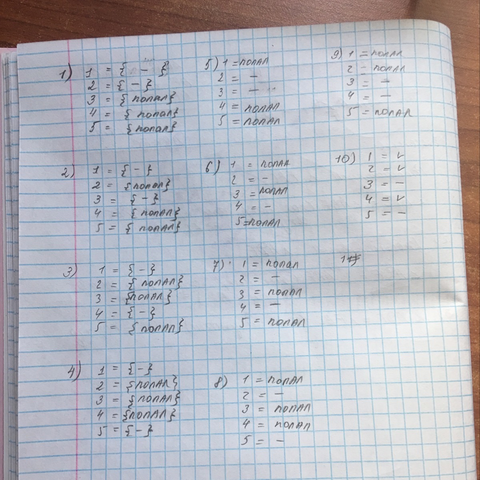 1) 1 = { - }
2 = { - }
3 = { попал}
4 = { попал}
5 = { попал}
2) 1 = { - }
2 = {попал}
3 = { - }
4 = { попал}
5 = { попал}
3) 1 = { - }
2 = { попал}
3 = {попал}
4 = { - }
5 = { попал}
4) 1 = { - }
2 = {попал}
3 = {попал}
4 = {попал}
5 = { - }
5) 1 = попал
2 = -
3 = -
4 = попал
5 = попал
6) 1 = попал
2 = -
3 = попал
4 = -
5 = попал
7) 1 = попал
2 = -
3 = попал
4 = -
5 = попал
8) 1 = попал
2 = -
3 = попал
4 = попал
5 = -
9) 1 = попал
2 - попал
3 = -
4 = -
5 = попал
10) 1 = v
2 = v
3 = -
4 = v
5 = -